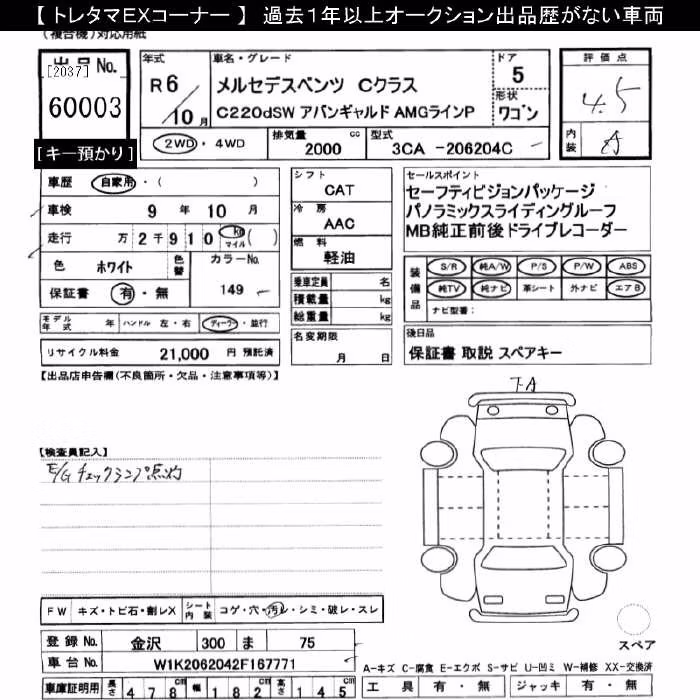 【 トレタマＥＸコーナー 】 過去１年以上オークション出品歴がない車両
(複合機)対応用紙
出品 No.
[2037]
60003
[キー預かり]
年式
R 6
10 月
車名・グレード
メルセデスベンツ Cクラス
C220dSW アバンギャルド AMGラインP
ドア
5
形状
ワゴン
2WD・4WD
排気量
cc
2000
型式
3CA -206204C
評価点
4.5
内装
A
車歴
自家用・( )
車検
9 年 10 月
走行
万 2 千 9 1 0 km マイル ( )
色
ホワイト
色替
カラーNo.
149
保証書
有・無
シフト
CAT
冷房
AAC
燃料
軽油
乗車定員 名
積載量 kg
総重量 kg
名変期限
月 日
セールスポイント
セーフティビジョンパッケージ
パノラミックスライディングルーフ
MB純正前後ドライブレコーダー
装備品
S/R 純A/W P/S P/W ABS
純TV 純ナビ 革シート 外ナビ エアB
ナビ型番：
モデル年式 年 ハンドル 左・右 ディーラー・並行
リサイクル料金 21,000 円 預託済
後日品
保証書 取説 スペアキー
【出品店申告欄(不良箇所・欠品・注意事項等)】
下A
【検査員記入】
E/Gチェックランプ点灯
FW キズ・トビ石・割レX シート内装 コゲ・穴・汚レ・シミ・破レ・スレ
登録 No. 金沢 300 ま 75
車台 No. W1K2062042F167771
車庫証明用 長さ 478 cm 幅 182 cm 高さ 145 cm
スペア
A-キズ C-腐食 E-エクボ S-サビ U-凹ミ W-補修 XX-交換済
工具 有・無 ジャッキ 有・無